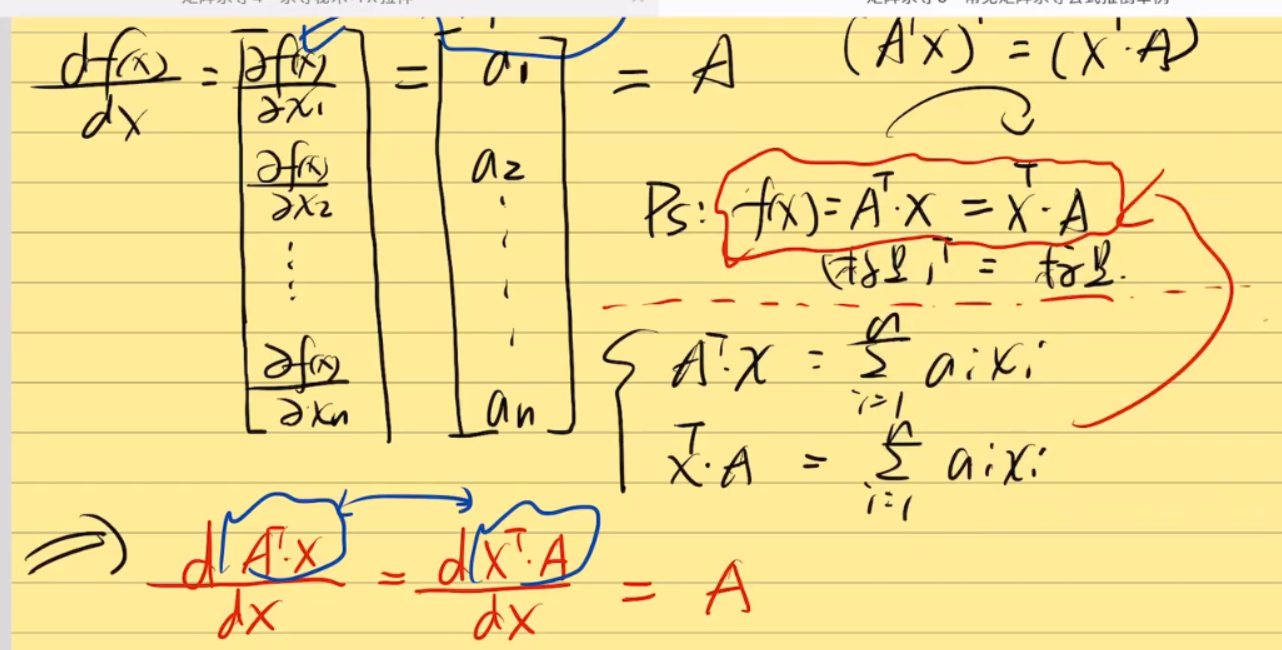 df(x)/dx = [∂f(x)/∂x₁ ∂f(x)/∂x₂ ⋮ ∂f(x)/∂xₙ] = [a₁ a₂ ⋮ aₙ] = A
(AᵀX)ᵀ = (Xᵀ·A)
Ps: f(x) = Aᵀ·X = Xᵀ·A
(标量)ᵀ = 标量.
{ Aᵀ·X = ∑ᵢ₌₁ⁿ aᵢxᵢ
Xᵀ·A = ∑ᵢ₌₁ⁿ aᵢxᵢ
⇒ d(Aᵀ·X)/dX = d(Xᵀ·A)/dX = A